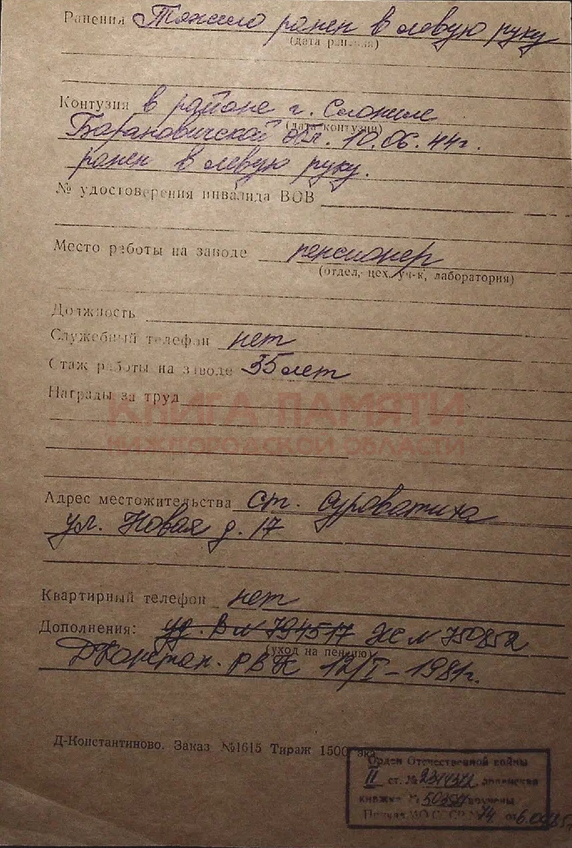 Ранения Тяжело ранен в левую руку
(дата ранения)
Контузия в районе г. Слониме
(дата контузии)
Барановичской обл. 10.06.44г.
ранен в левую руку.
№ удостоверения инвалида ВОВ
Место работы на заводе пенсионер
(отдел, цех, уч-к, лаборатория)
Должность
Служебный телефон нет
Стаж работы на заводе 35 лет
Награды за труд
КНИГА ПАМЯТИ
НИЖЕГОРОДСКОЙ ОБЛАСТИ
Адрес местожительства ст. Суроватиха
ул. Новая д. 17
Квартирный телефон нет
Дополнения: уд. В № 794517 Ж № 750852
(уход на пенсию)
Дконстан. РВК 12/I – 1981г.
Д-Константиново. Заказ №1615 Тираж 1500 экз.
Орден Отечественной войны
II ст. № орденская
книжка № вручены